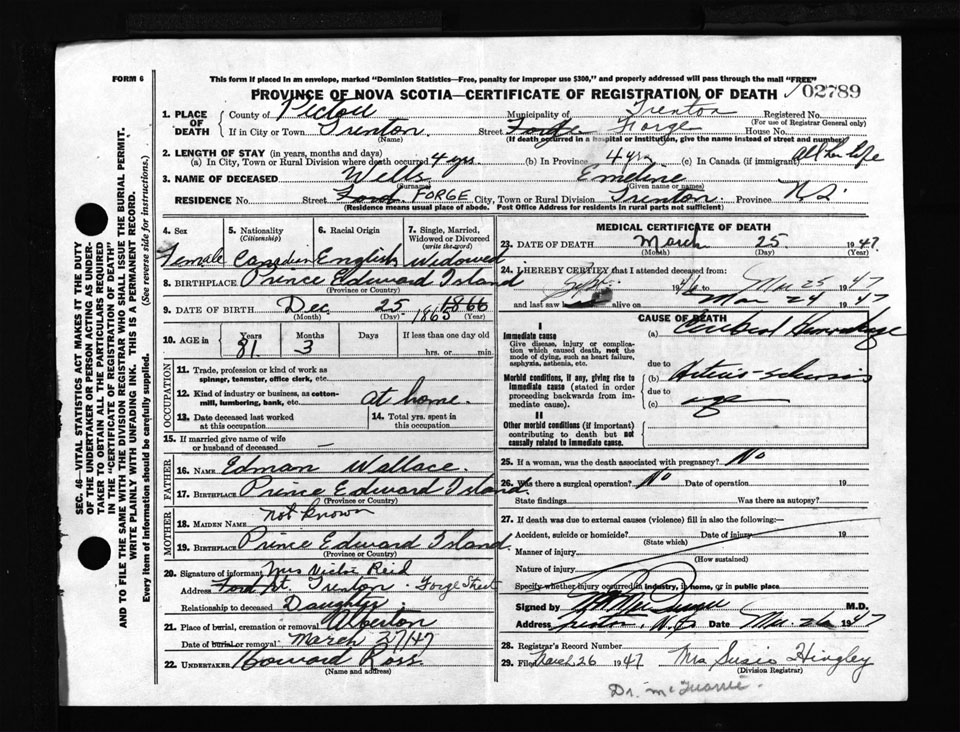 FORM 6
This form if placed in an envelope, marked "Dominion Statistics—Free, penalty for improper use $300," and properly addressed will pass through the mail "FREE"
PROVINCE OF NOVA SCOTIA—CERTIFICATE OF REGISTRATION OF DEATH
02789
1. PLACE OF DEATH
County of Pictou Municipality of Trenton Registered No.
(For use of Registrar General only)
If in City or Town Trenton. Street Forge House No.
(Name) (If death occurred in a hospital or institution, give the name instead of street and number)
2. LENGTH OF STAY (in years, months and days)
(a) In City, Town or Rural Division where death occurred 4 yrs. (b) In Province 4 yrs (c) In Canada (if immigrant) all her life
3. NAME OF DECEASED Wells Emeline
(Surname) (Given name or names)
RESIDENCE No. Street Ford FORGE City, Town or Rural Division Trenton Province N.S.
(Residence means usual place of abode. Post Office Address for residents in rural parts not sufficient)
4. Sex 5. Nationality (Citizenship) 6. Racial Origin 7. Single, Married, Widowed or Divorced (write the word)
Female Canadian English Widowed
8. BIRTHPLACE Prince Edward Island
(Province or Country)
9. DATE OF BIRTH Dec 25 1866
1865
(Month) (Day) (Year)
10. AGE in Years Months Days If less than one day old
81 3 hrs. or min.
OCCUPATION
11. Trade, profession or kind of work as spinner, teamster, office clerk, etc.
12. Kind of industry or business, as cotton-mill, lumbering, bank, etc. at home.
13. Date deceased last worked at this occupation
14. Total yrs. spent in this occupation
15. If married give name of wife or husband of deceased —
FATHER
16. NAME Edman Wallace.
17. BIRTHPLACE Prince Edward Island.
(Province or Country)
MOTHER
18. MAIDEN NAME not known
19. BIRTHPLACE Prince Edward Island.
(Province or Country)
20. Signature of informant Mrs Victor Reid
Address Ford St. Trenton - Forge Street
Relationship to deceased Daughter
21. Place of burial, cremation or removal Alberton
Date of burial or removal March 27/47
22. UNDERTAKER Howard Ross.
(Name and address)
MEDICAL CERTIFICATE OF DEATH
23. DATE OF DEATH March 25. 1947
(Month) (Day) (Year)
24. I HEREBY CERTIFY that I attended deceased from:
Sept. 1946 to Mar 25 1947
and last saw alive on Mar 24 1947
CAUSE OF DEATH
I
Immediate cause
Give disease, injury or complication which caused death, not the mode of dying, such as heart failure, asphyxia, asthenia, etc.
(a) Cerebral Hemorrhage
due to
Morbid conditions, if any, giving rise to immediate cause (stated in order proceeding backwards from immediate cause).
(b) Arterio-sclerosis
due to
(c) age
II
Other morbid conditions (if important) contributing to death but not causally related to immediate cause.
25. If a woman, was the death associated with pregnancy? No
26. Was there a surgical operation? No Date of operation 19
State findings Was there an autopsy?
27. If death was due to external causes (violence) fill in also the following:—
Accident, suicide or homicide? Date of injury 19
(State which)
Manner of injury
(How sustained)
Nature of injury
Specify whether injury occurred in industry, in home, or in public place
Signed by M.D.
Address Trenton, N.S. Date Mar. 26 1947
28. Registrar's Record Number
29. Filed March 26 1947 Mrs Susie Hingley
(Division Registrar)
SEC. 46—VITAL STATISTICS ACT MAKES IT THE DUTY
OF THE UNDERTAKER OR PERSON ACTING AS UNDER-
TAKER TO OBTAIN ALL THE PARTICULARS REQUIRED
IN THE "CERTIFICATE OF REGISTRATION OF DEATH"
AND TO FILE THE SAME WITH THE DIVISION REGISTRAR WHO SHALL ISSUE THE BURIAL PERMIT.
WRITE PLAINLY WITH UNFADING INK. THIS IS A PERMANENT RECORD.
Every item of information should be carefully supplied. (See reverse side for instructions.)